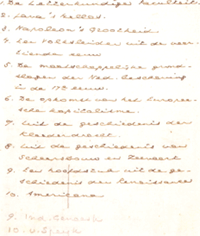 1. De Letterkundige faculteit
2. Java's Hellas.
3. Napoleon's Grootheid
4. Een Volksleider uit de veer-
tiende eeuw
5. De maatschappelijke grond-
slagen der Ned. beschaving
in de 17e eeuw.
6. De opkomst van het Europee-
sche Kapitalisme.
7. Uit de geschiedenis der
Kleederdracht.
8. Uit de geschiedenis van
Scheepsbouw en Zeevaart
9. Een hoofdstuk uit de ge-
schiedenis der Renaissance
10. Americana
9. Ind.
10.